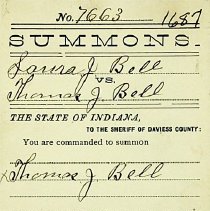 No. 7663 1687
SUMMONS.
Laura J. Bell
VS.
Thomas J. Bell
THE STATE OF INDIANA,
TO THE SHERIFF OF DAVIESS COUNTY:
You are commanded to summon
x Thomas J. Bell